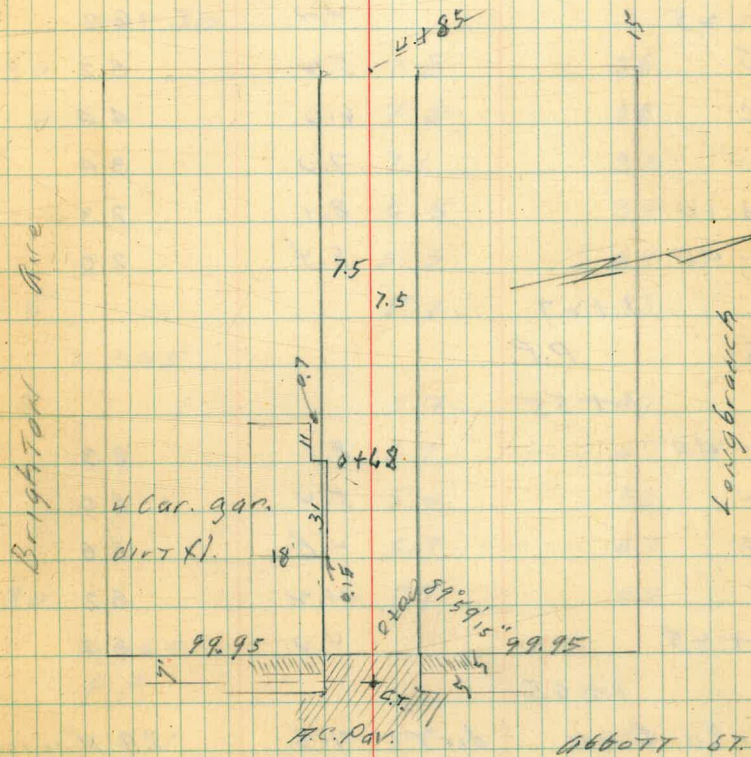 4+85
15
Brighton Ave
7.5
7.5
Longbranch
0.7
11
0+48
4 Car. gar.
31
dirt fl.
18
0.15
0+00
89°59'15"
99.95
99.95
7'
5
5
C.T.
A.C. Pav.
Abbott ST.